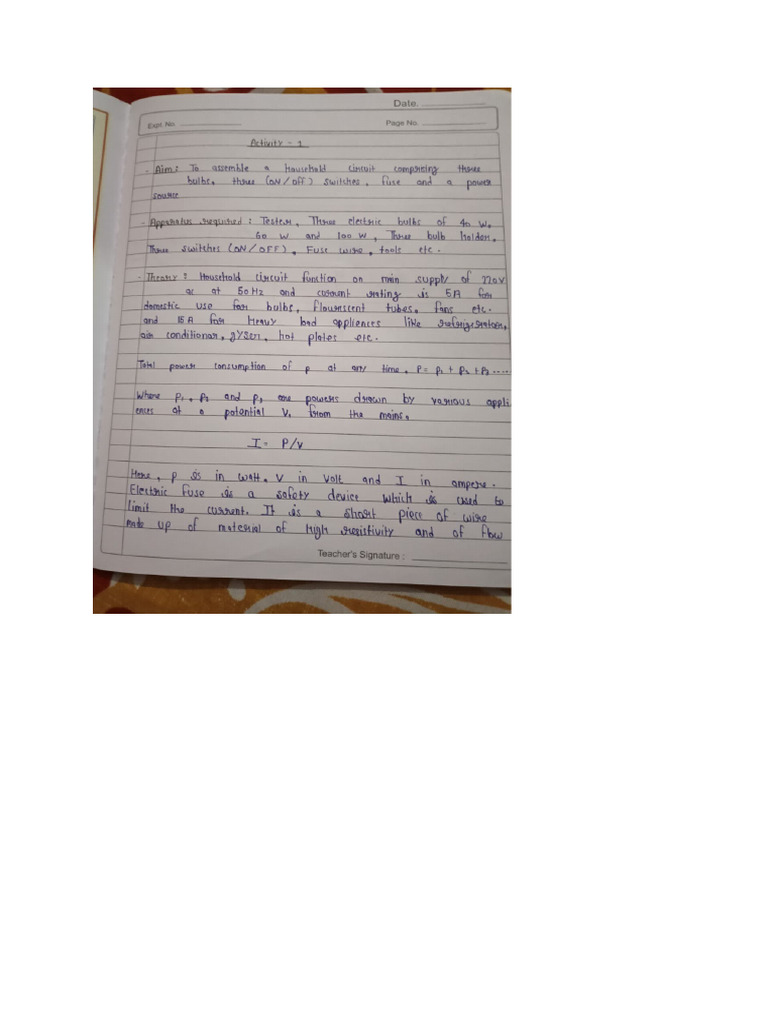 Date.
Expt. No.
Page No.
Activity - 1
- Aim : To assemble a household circuit comprising three
bulbs, three (ON/OFF) switches, fuse and a power
source
- Apparatus required : Tester, Three electric bulbs of 40 W,
60 W and 100 W, Three bulb holder,
Three switches (ON/OFF), Fuse wire, tools etc.
- Theory : Household circuit function on main supply of 220V
ac at 50 Hz and current rating is 5A for
domestic use for bulbs, flourscent tubes, fans etc.
and 15A for heavy load appliences like refrigerator,
air conditionar, gyser, hot plates etc.
Total power consumption of p at any time, P = p1 + p2 + p3 .....
Where p1, p2 and p3 are powers drawn by various appli
ences at a potential V, from the mains,
I = P/V
Here, p is in watt, V in volt and I in ampere.
Electric fuse is a safety device which is used to
limit the current. It is a short piece of wire
made up of material of high resistivity and of flow
Teacher's Signature :